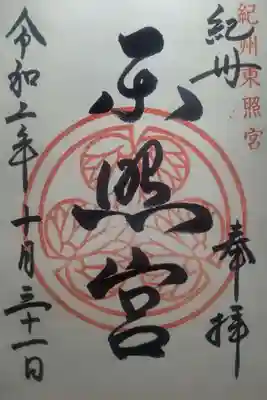 紀州東照宮
紀州
奉拝
东照宮
令和五年十月三十一日